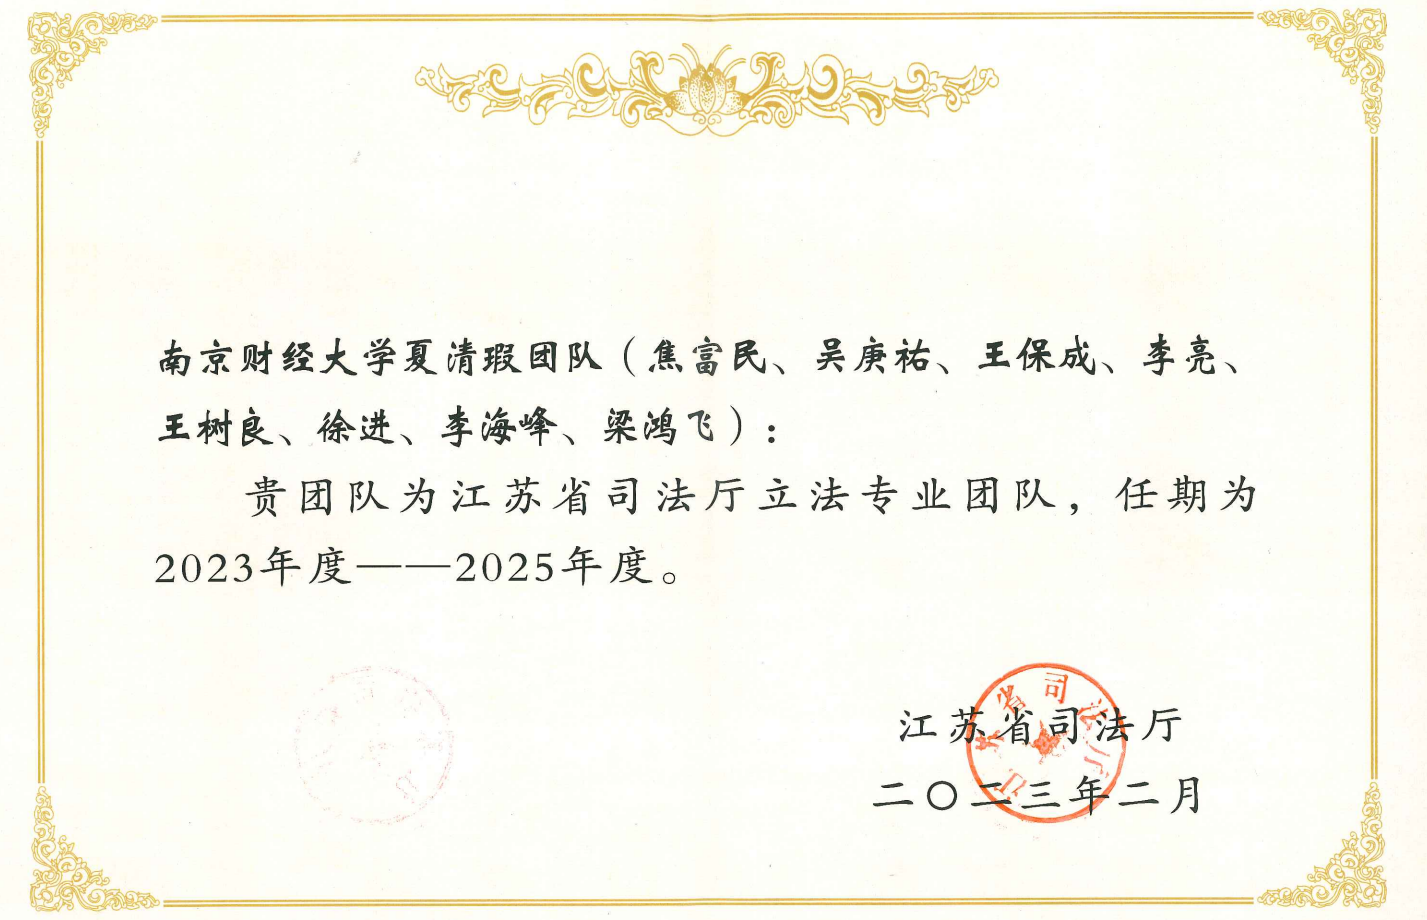 南京财经大学夏清瑕团队（焦富民、吴庚祐、王保成、李亮、
王树良、徐进、李海峰、梁鸿飞）：
贵团队为江苏省司法厅立法专业团队，任期为
2023年度——2025年度。
江苏省司法厅
江苏省司法厅
二〇二三年二月